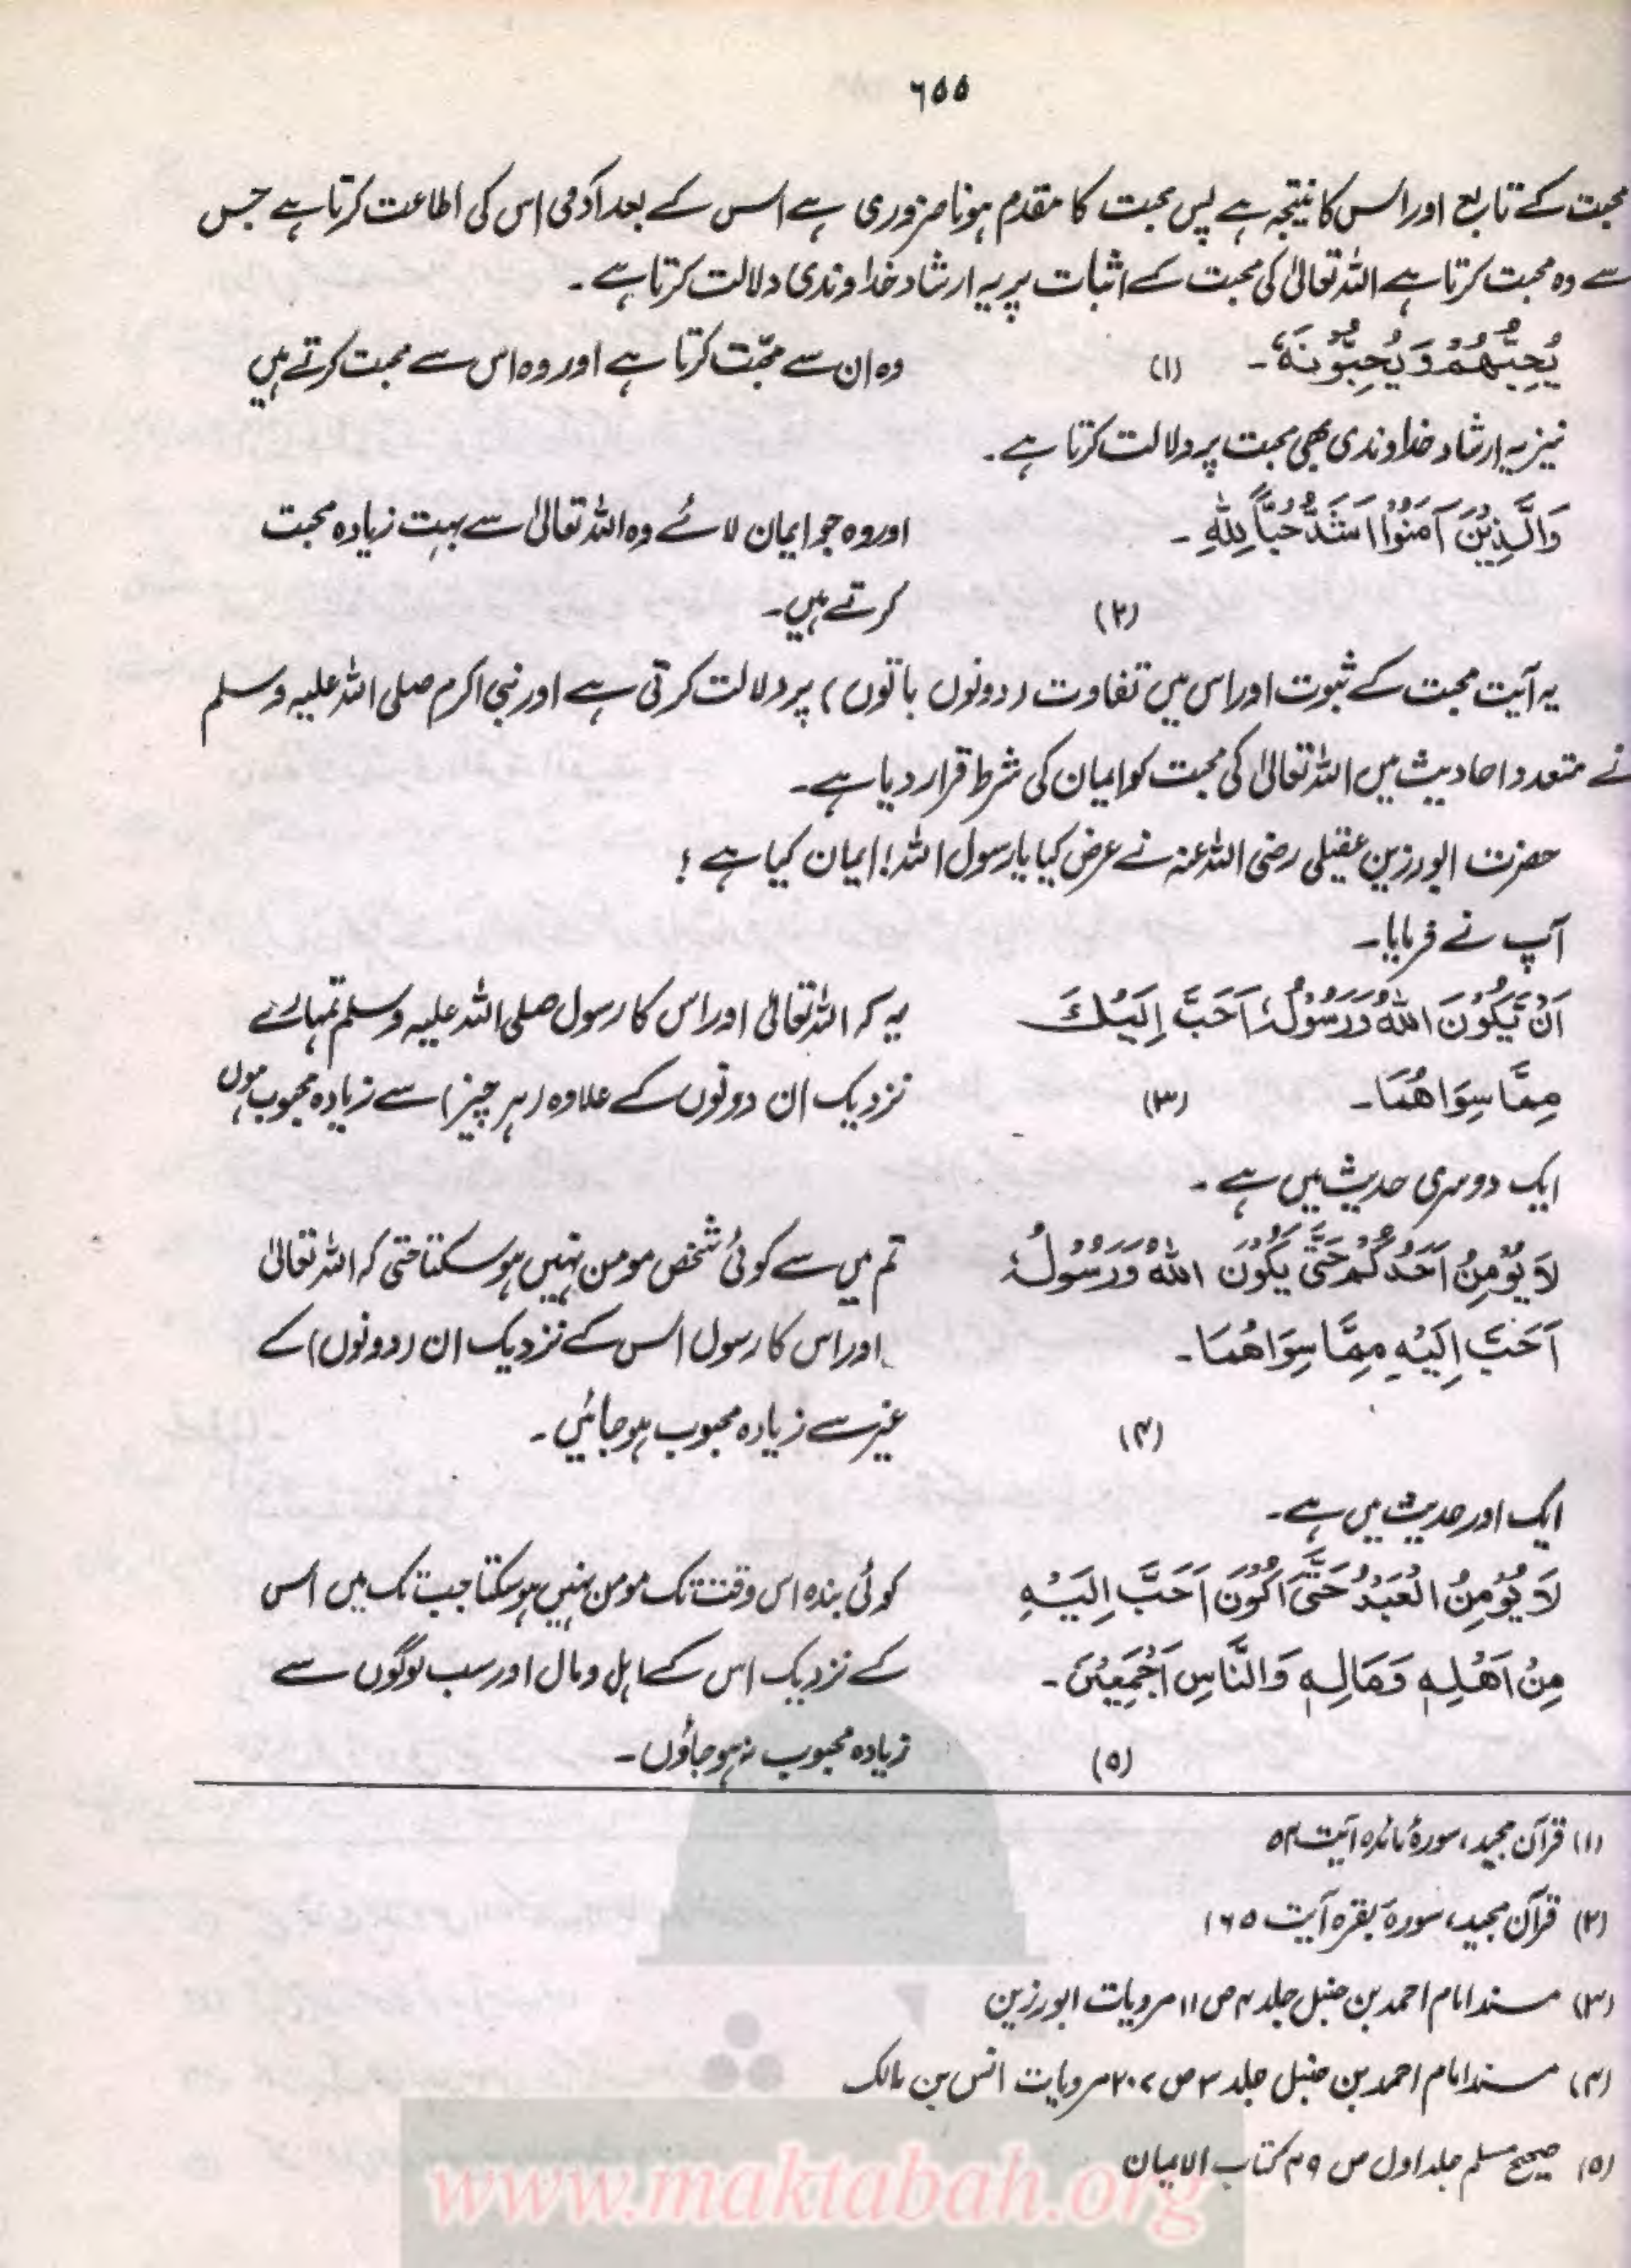 ۶۵۵
محبت کے تابع اور اس کا نتیجہ ہے پس محبت کا مقدم ہونا ضروری ہے اس کے بعد آدمی اس کی اطاعت کرتا ہے جس
سے وہ محبت کرتا ہے اللہ تعالیٰ کی محبت کے اثبات پر یہ ارشاد خداوندی دلالت کرتا ہے۔
یُحِبُّهُمْ وَیُحِبُّوْنَهٗ۔ (۱) وہ ان سے محبّت کرتا ہے اور وہ اس سے محبت کرتے ہیں
نیز یہ ارشاد خداوندی بھی محبت پر دلالت کرتا ہے۔
وَالَّذِیْنَ آمَنُوْا اَشَدُّ حُبًّا لِلّٰهِ۔ اور وہ جو ایمان لائے وہ اللہ تعالیٰ سے بہت زیادہ محبت
(۲) کرتے ہیں۔
یہ آیت محبت کے ثبوت اور اس میں تفاوت (دونوں باتوں) پر دلالت کرتی ہے اور نبی اکرم صلی اللہ علیہ وسلم
نے متعدد احادیث میں اللہ تعالیٰ کی محبت کو ایمان کی شرط قرار دیا ہے۔
حضرت ابورزین عقیلی رضی اللہ عنہ نے عرض کیا یا رسول اللہ! ایمان کیا ہے؟
آپ نے فرمایا۔
اَنْ یَّکُوْنَ اللّٰهُ وَرَسُوْلُهٗ اَحَبَّ اِلَیْكَ یہ کہ اللہ تعالیٰ اور اس کا رسول صلی اللہ علیہ وسلم تمہارے
مِمَّا سِوَاهُمَا۔ (۳) نزدیک ان دونوں کے علاوہ (ہر چیز) سے زیادہ محبوب ہوں
ایک دوسری حدیث میں ہے۔
لَا یُؤْمِنُ اَحَدُکُمْ حَتّٰی یَکُوْنَ اللّٰهُ وَرَسُوْلُهٗ تم میں سے کوئی شخص مومن نہیں ہو سکتا حتی کہ اللہ تعالیٰ
اَحَبَّ اِلَیْهِ مِمَّا سِوَاهُمَا۔ اور اس کا رسول اس کے نزدیک ان (دونوں) کے
(۴) غیر سے زیادہ محبوب ہو جائیں۔
ایک اور حدیث میں ہے۔
لَا یُؤْمِنُ الْعَبْدُ حَتّٰی اَکُوْنَ اَحَبَّ اِلَیْهِ کوئی بندہ اس وقت تک مومن نہیں ہو سکتا جب تک میں اس
مِنْ اَهْلِهٖ وَمَالِهٖ وَالنَّاسِ اَجْمَعِیْنَ۔ کے نزدیک اس کے اہل و مال اور سب لوگوں سے
(۵) زیادہ محبوب نہ ہو جاؤں۔
(۱) قرآن مجید، سورۂ مائدہ آیت ۵۴
(۲) قرآن مجید، سورۃ بقرہ آیت ۱۶۵
(۳) مسند امام احمد بن حنبل جلد ۴ ص ۱۱ مرویات ابورزین
(۴) مسند امام احمد بن حنبل جلد ۳ ص ۲۰۷ مرویات انس بن مالک
(۵) صحیح مسلم جلد اول ص ۴۹ کتاب الایمان
www.maktabah.org